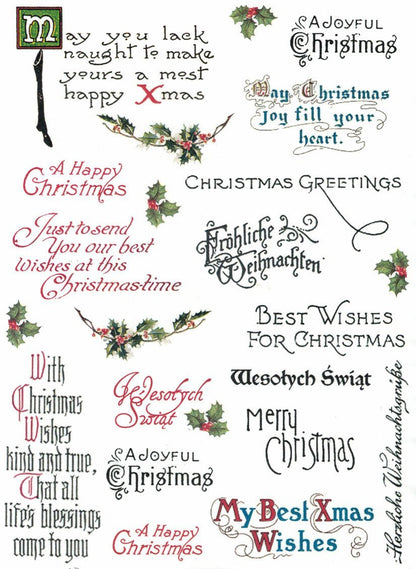 May you lack
naught to make
yours a most
happy Xmas
A JOYFUL
Christmas
May Christmas
joy fill your
heart.
A Happy
Christmas
CHRISTMAS GREETINGS
Just to send
You our best
wishes at this
Christmas-time
Fröhliche
Weihnachten
BEST WISHES
FOR CHRISTMAS
With
Christmas
Wishes
kind and true,
That all
life's blessings
come to you
Wesołych
Świąt
Wesołych Świąt
Merry
Christmas
Herzliche Weihnachtsgrüße
A JOYFUL
Christmas
A Happy
Christmas
My Best Xmas
Wishes